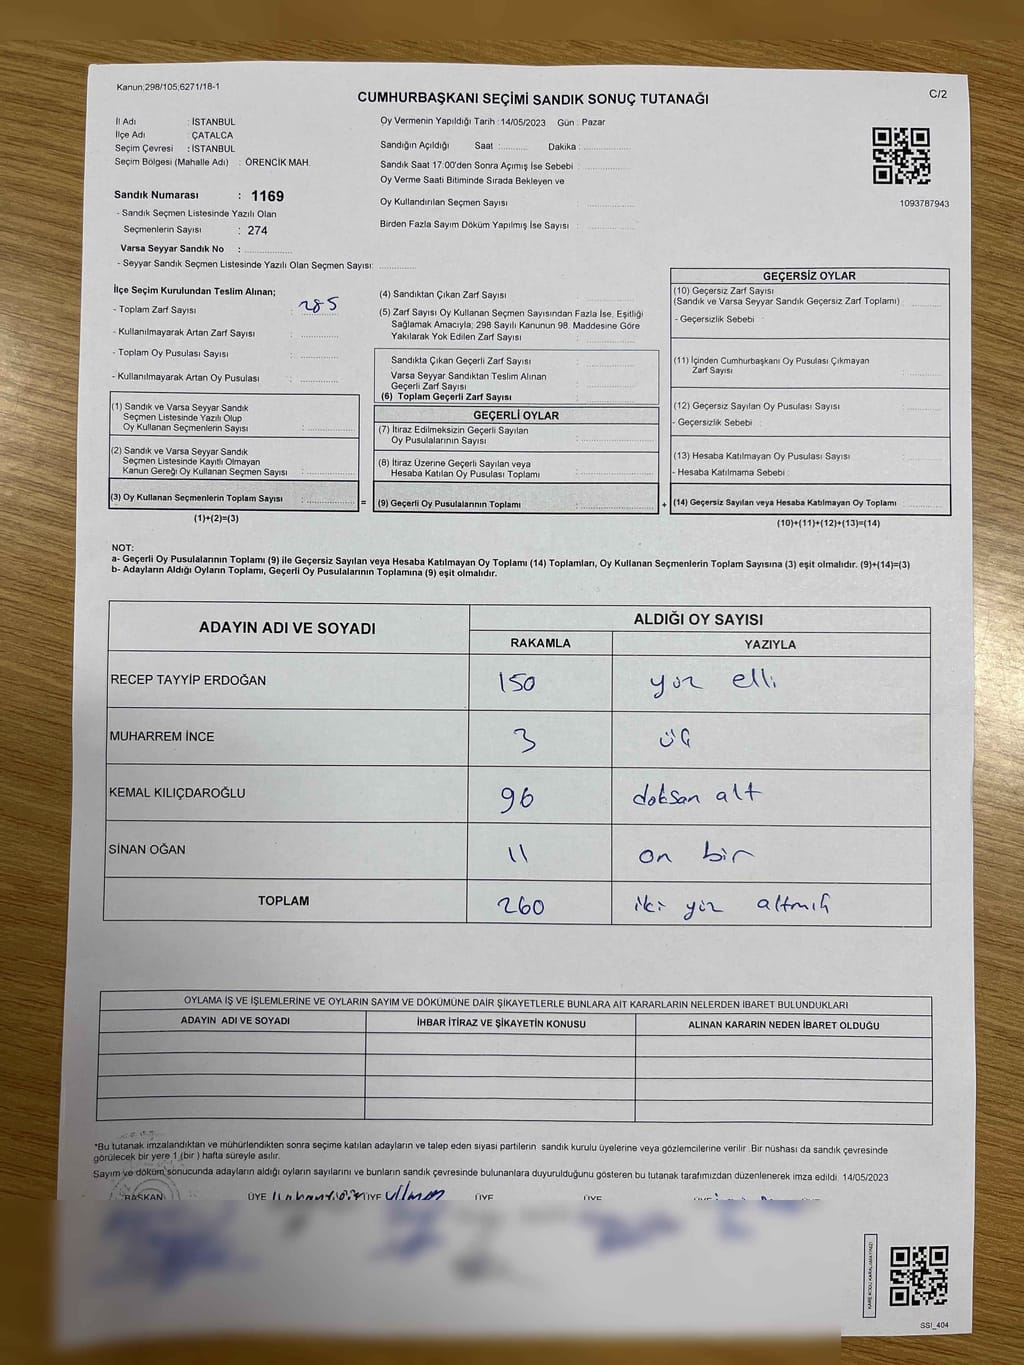 Kanun;298/105;6271/18-1
CUMHURBAŞKANI SEÇİMİ SANDIK SONUÇ TUTANAĞI
C/2
İl Adı : İSTANBUL
İlçe Adı : ÇATALCA
Seçim Çevresi : İSTANBUL
Seçim Bölgesi (Mahalle Adı) : ÖRENCİK MAH.
Sandık Numarası : 1169
- Sandık Seçmen Listesinde Yazılı Olan
Seçmenlerin Sayısı : 274
Varsa Seyyar Sandık No :
- Seyyar Sandık Seçmen Listesinde Yazılı Olan Seçmen Sayısı:
Oy Vermenin Yapıldığı Tarih : 14/05/2023 Gün : Pazar
Sandığın Açıldığı Saat : Dakika :
Sandık Saat 17:00'den Sonra Açımış İse Sebebi :
Oy Verme Saati Bitiminde Sırada Bekleyen ve
Oy Kullandırılan Seçmen Sayısı
Birden Fazla Sayım Döküm Yapılmış İse Sayısı :
1093787943
İlçe Seçim Kurulundan Teslim Alınan;
- Toplam Zarf Sayısı : 285
- Kullanılmayarak Artan Zarf Sayısı :
- Toplam Oy Pusulası Sayısı :
- Kullanılmayarak Artan Oy Pusulası :
(1) Sandık ve Varsa Seyyar Sandık
Seçmen Listesinde Yazılı Olup
Oy Kullanan Seçmenlerin Sayısı :
(2) Sandık ve Varsa Seyyar Sandık
Seçmen Listesinde Kayıtlı Olmayan
Kanun Gereği Oy Kullanan Seçmen Sayısı :
(3) Oy Kullanan Seçmenlerin Toplam Sayısı :
(1)+(2)=(3)
=
(4) Sandıktan Çıkan Zarf Sayısı
(5) Zarf Sayısı Oy Kullanan Seçmen Sayısından Fazla İse, Eşitliği
Sağlamak Amacıyla; 298 Sayılı Kanunun 98. Maddesine Göre
Yakılarak Yok Edilen Zarf Sayısı
Sandıkta Çıkan Geçerli Zarf Sayısı
Varsa Seyyar Sandıktan Teslim Alınan
Geçerli Zarf Sayısı
(6) Toplam Geçerli Zarf Sayısı
GEÇERLİ OYLAR
(7) İtiraz Edilmeksizin Geçerli Sayılan
Oy Pusulalarının Sayısı
(8) İtiraz Üzerine Geçerli Sayılan veya
Hesaba Katılan Oy Pusulası Toplamı
(9) Geçerli Oy Pusulalarının Toplamı
+
GEÇERSİZ OYLAR
(10) Geçersiz Zarf Sayısı
(Sandık ve Varsa Seyyar Sandık Geçersiz Zarf Toplamı)
- Geçersizlik Sebebi :
(11) İçinden Cumhurbaşkanı Oy Pusulası Çıkmayan
Zarf Sayısı
(12) Geçersiz Sayılan Oy Pusulası Sayısı
- Geçersizlik Sebebi :
(13) Hesaba Katılmayan Oy Pusulası Sayısı
- Hesaba Katılmama Sebebi :
(14) Geçersiz Sayılan veya Hesaba Katılmayan Oy Toplamı
(10)+(11)+(12)+(13)=(14)
NOT:
a- Geçerli Oy Pusulalarının Toplamı (9) ile Geçersiz Sayılan veya Hesaba Katılmayan Oy Toplamı (14) Toplamları, Oy Kullanan Seçmenlerin Toplam Sayısına (3) eşit olmalıdır. (9)+(14)=(3)
b- Adayların Aldığı Oyların Toplamı, Geçerli Oy Pusulalarının Toplamına (9) eşit olmalıdır.
ADAYIN ADI VE SOYADI
ALDIĞI OY SAYISI
RAKAMLA YAZIYLA
RECEP TAYYİP ERDOĞAN 150 yüz elli
MUHARREM İNCE 3 üç
KEMAL KILIÇDAROĞLU 96 doksan altı
SİNAN OĞAN 11 on bir
TOPLAM 260 iki yüz altmış
OYLAMA İŞ VE İŞLEMLERİNE VE OYLARIN SAYIM VE DÖKÜMÜNE DAİR ŞİKAYETLERLE BUNLARA AİT KARARLARIN NELERDEN İBARET BULUNDUKLARI
ADAYIN ADI VE SOYADI İHBAR İTİRAZ VE ŞİKAYETİN KONUSU ALINAN KARARIN NEDEN İBARET OLDUĞU
*Bu tutanak imzalandıktan ve mühürlendikten sonra seçime katılan adayların ve talep eden siyasi partilerin sandık kurulu üyelerine veya gözlemcilerine verilir. Bir nüshası da sandık çevresinde
görülecek bir yere 1 (bir ) hafta süreyle asılır.
Sayım ve döküm sonucunda adayların aldığı oyların sayılarını ve bunların sandık çevresinde bulunanlara duyurulduğunu gösteren bu tutanak tarafımızdan düzenlenerek imza edildi. 14/05/2023
BAŞKAN ÜYE ÜYE ÜYE ÜYE
SSI_404